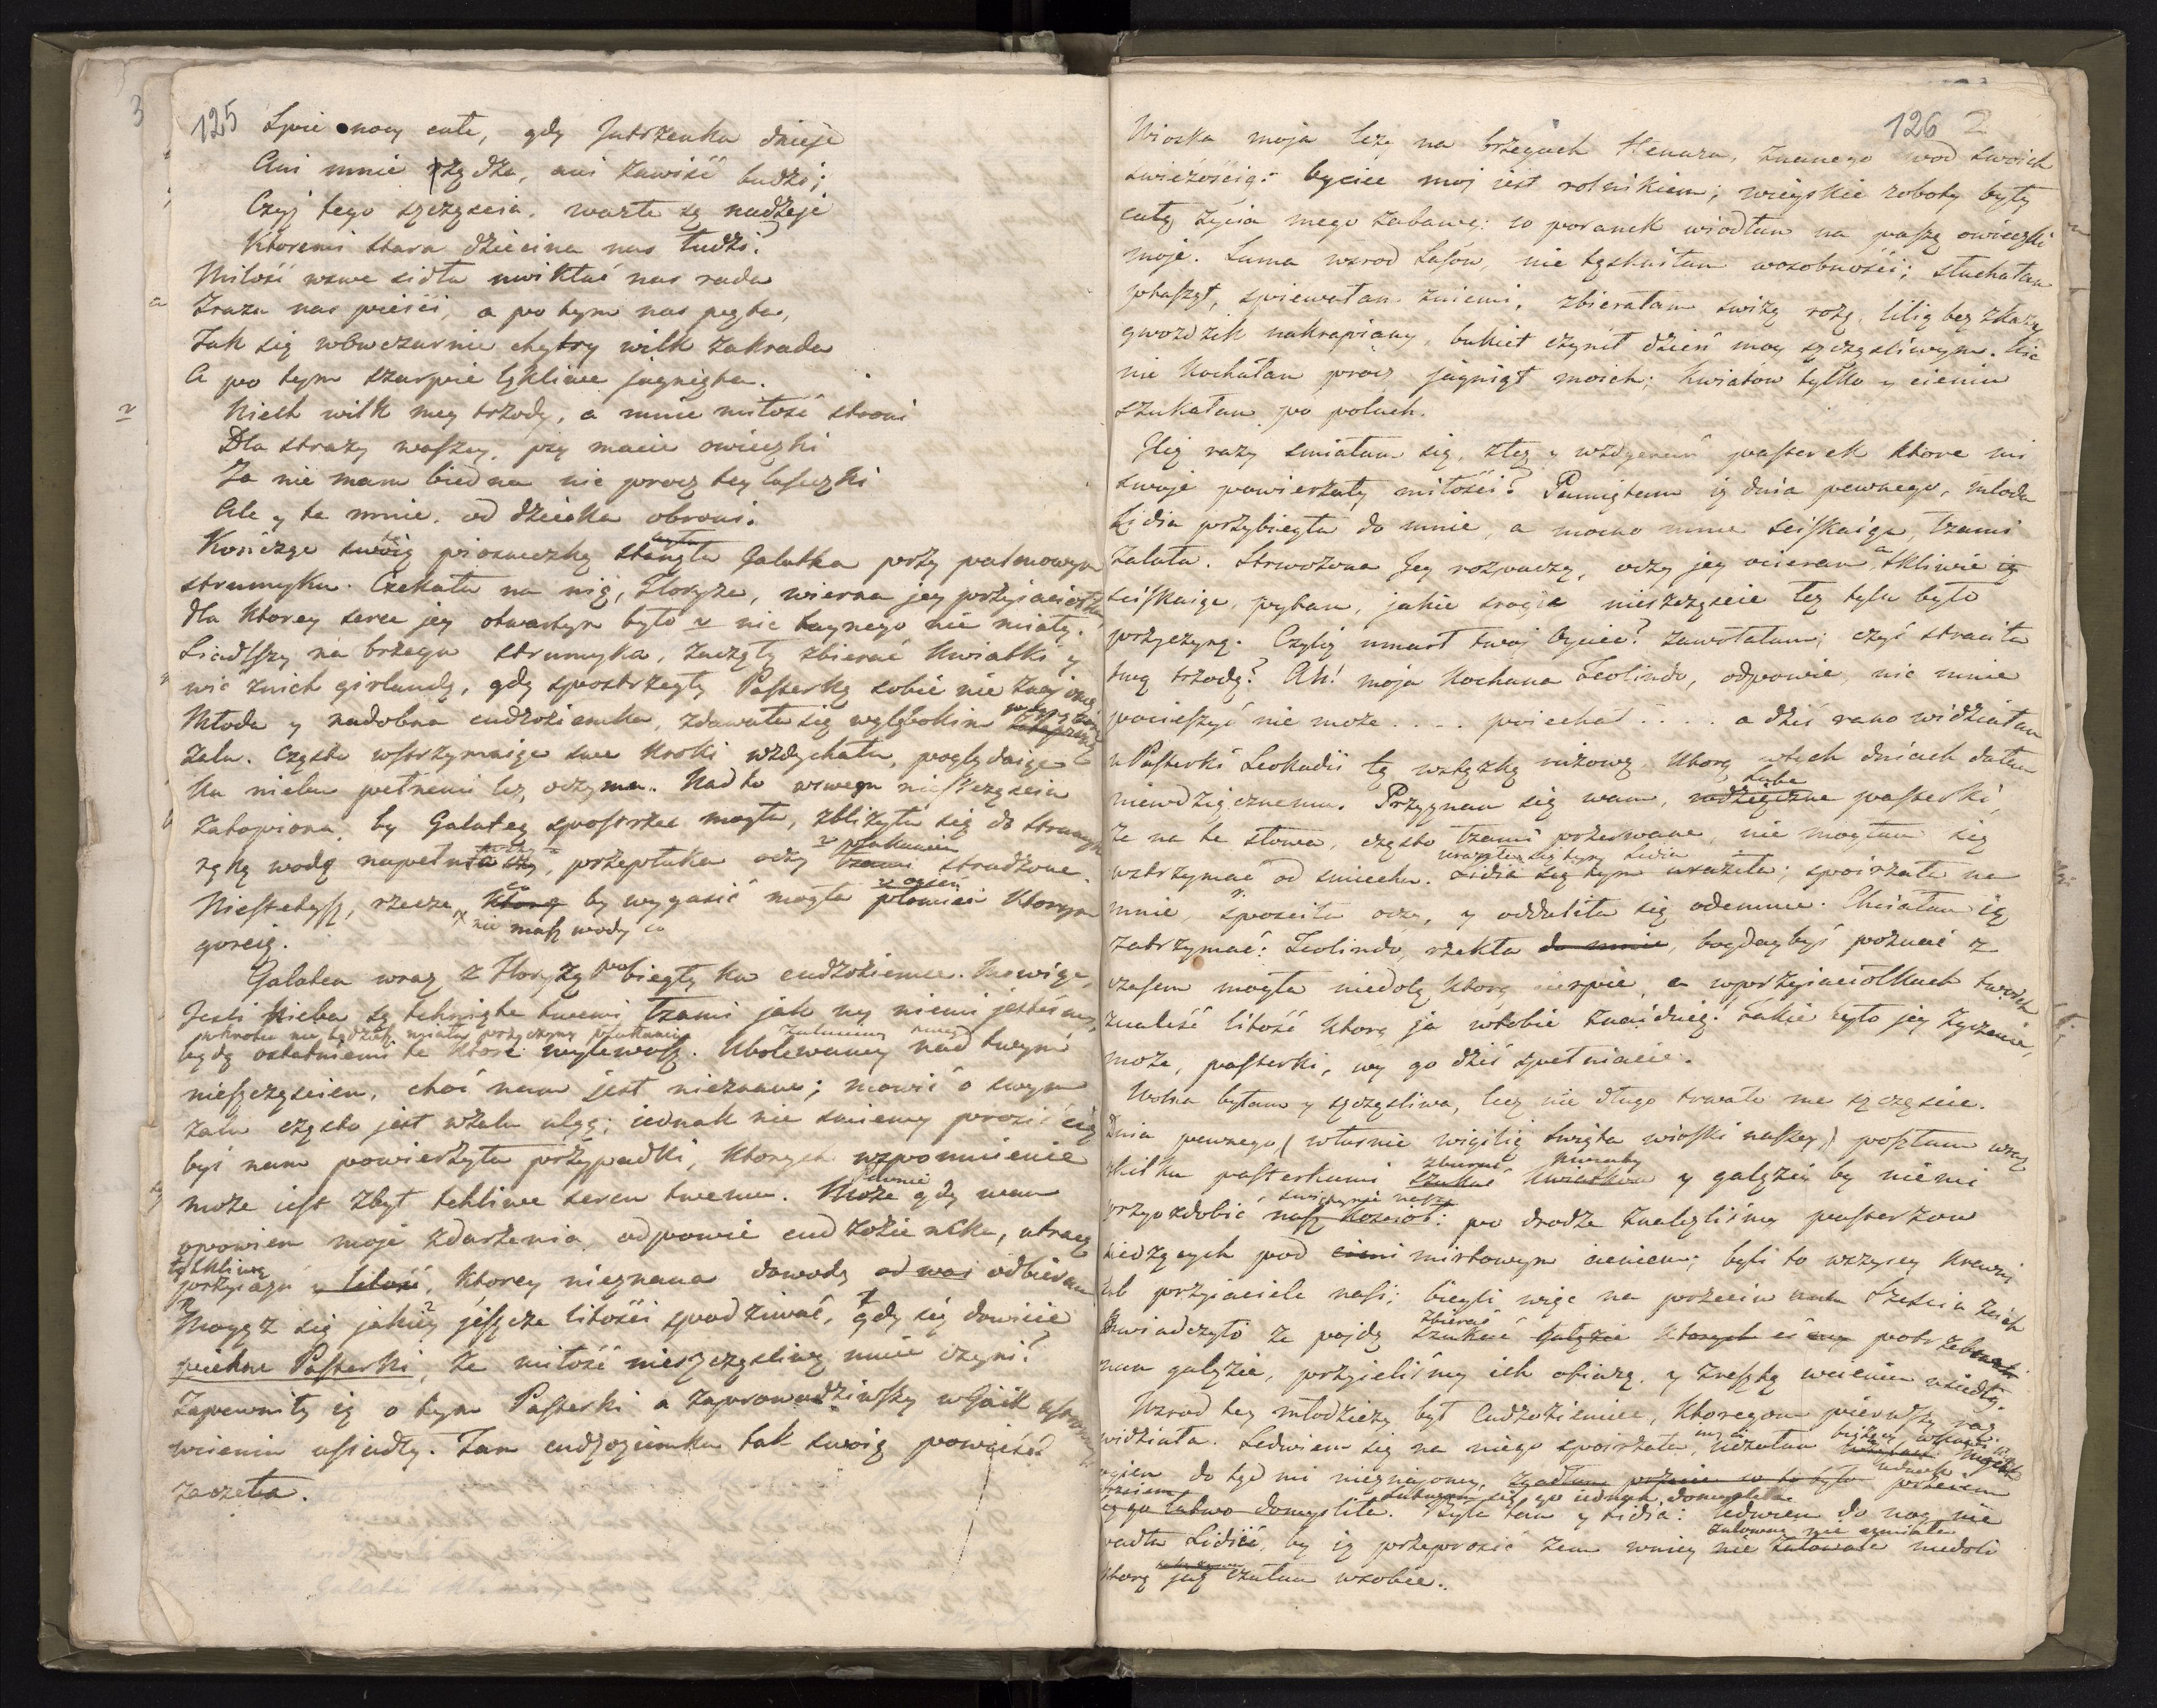 125
Spie nocy całe, gdy Jutrzenka dnieje
Ani mnie żądza, ani zawiść budzi;
Czyj tego szczęscia, warte są nadzieje
Ktoremi stara dziecina nas łudzi.
Miłość wswe sidła uwikłać nas rada
Zrazu nas pieści, a po tym nas pęta,
Jak się wOwczarnie chytry wilk zakrada
A po tym szarpie lękliwe jagnięta.
Niech wilk mey trzody, a mnie miłość stroni
Dla straży waszey, psy macie owieczki
Ja nie mam biedna nic procz tey laseczki
Ale y ta mnie, od dziecka obroni.
Kończąc swoią piosneczkę stanęła Galatka przy palmowym
strumyku. Czekała na nią, Floryza, wierna jey przyjaciołka
dla ktorey serce jey otwartym było y nic taynego nie miały.
Siadłszy na brzegu strumyka, zaczęły zbierać kwiatki y
wić znich girlandy, gdy spostrzegły Pasterkę sobie nie znajomą
Młoda y nadobna cudzoziemka, zdawała się wgłębokim
żalu. Często wstrzymaiąc swe kroki wzdychała, poglądaiąc
ku niebu pełnemi łez, oczyma. Nadto wswego nieszczęscia
zatopiona, by Galateę spostrzec mogła, zbliżyła się do strumyka
ręką wodą napełnia, przepłuka oczy łzami płakaniem strudzone.
Niestetysz, rzecze, ktorą by wygasić mogła płomień y ogien ktorym
x nie masz wody co
goreię.
Galatea wraz z Floryzą pobiegły ku cudzoziemce. Mowiąc,
Jesli Nieba są tchnięte twemi łzami jak my niemi jesteśmy,
wkrotce nie będziesz miała przyczyny płakania
będą ostatniemi te ktore wylewasz. Ubolewamy nad twym
nieszczęsciem, choć nam jest nieznane; mowić o swym
żalu często jest wżalu ulgą; iednak nie smiemy prosić cię
byś nam powierzyła przypadki, ktorych wzpomnienie
może iest zbyt tchliwe sercu twemu. Może gdy wam
opowiem moje zdarzenia, odpowie cudzoziemka, utracę
tę tkliwą
przyiaźń y litość, ktorey nieznana dowody od was odbieram
Mogęz się jakiey jeszcze litości spodziwać, gdy się dowiecie
piękne Pasterki, że miłość nieszczęsliwą mnie czyni?
Zapewniły ią o tym Pasterki a zaprowadziwszy wGaik
wcieniu usiadły. Tam cudzoziemka tak swoią powieść
zaczeła.
126 2
Wioska moja leży na brzegach Henara, znanego wod swoich
swieżością: Oyciec moj jest rolnikiem; wieyskie roboty były
całą życia mego zabawą: co poranek wiodłam na paszę owieczki
moje. Sama wsrod Lasow, nie tęskniłam wosobności; słuchałam
ptasząt, spiewałam zniemi, zbierałam swieżą rożę, lilię bez skazy
gwozdzik nakrapiany, bukiet czynił dzień moy szczęsliwym. Nic
nie kochałam procz jagniąt moich; kwiatow tylko y cieniu
szukałam po polach.
Ileż razy smiałam się, złez y wzdychań pasterek ktore mi
swoje powierzały miłości? Pamiętam iż dnia pewnego, młoda
Lidia przybiegła do mnie, a mocno mnie sciskaiąc, łzami
zalała. Strwożona Jey rozpaczą, oczy jey ocieram a tkliwie ią
sciskaiąc, pytam, jakie srogie nieszczęscie łez tylu było
przyczyną. Czyliż umarł twoj Oyciec? zawołałam; czyś straciła
twą trzodę? Ah! moja kochana Teolindo, odpowie, nic mnie
pocieszyć nie może . . . . poiechał . . . . a dziś rano widziałam
u Pasterki Leokadii tę wstążkę rużową, ktorą wtych dniach dałam
niewdzięcznemu. Przyznam się wam, lube pasterki,
że na te słowa, często łzami przerywane, nie mogłam się
wstrzymać od smiechu. uraziła się tym Lidia Lidia się tym uraziła; spoirzała na
mnie, spusciła oczy, y oddaliła się odemnie. Chciałam ią
zatrzymać: Teolindo, rzekła do mnie, bogdaybyś poznać z
czasem mogła niedolę ktorą cierpię, a wprzyiaciołkach twoich
znaleść litość ktorą ja wtobie znajduię! Takie było jey życzenie,
może, pasterki, wy go dziś spełniacie.
Wolna byłam y szczęsliwa, lecz nie długo trwało me szczęscie.
Dnia pewnego (własnie wigilią święta wioski naszey) poszłam wraz
zkilku pasterkami zbierać kwiaty szukać kwiatkow y gałęzi by niemi
przyozdobić świątynię naszą nasz kosciół: po drodze znalezlismy pasterzow
siedzących pod mirtowym cieniem; byli to wszyscy krewni
lub przyiaciele nasi; biegli więc na przeciw nam Szesciu znich
oswiadczyło że pojdą zbierać szukać potrzebne
nam gałęzie, przyieliśmy ich ofiarę, y zresztą wcieniu usiadły.
Wsrod tey młodzieży był Cudzoziemiec, ktoregom pierwszy raz
widziała. Ledwiem się na niego spoirzała, uczułam
ogien do tąd mi nieznajomy,
łatwo domysliła. Była tam y Lidia: ledwiem do nog nie
padła Lidii, by ią przeprosić żem wniey nie żałowała niedoli
ktorą już czułam wsobie.